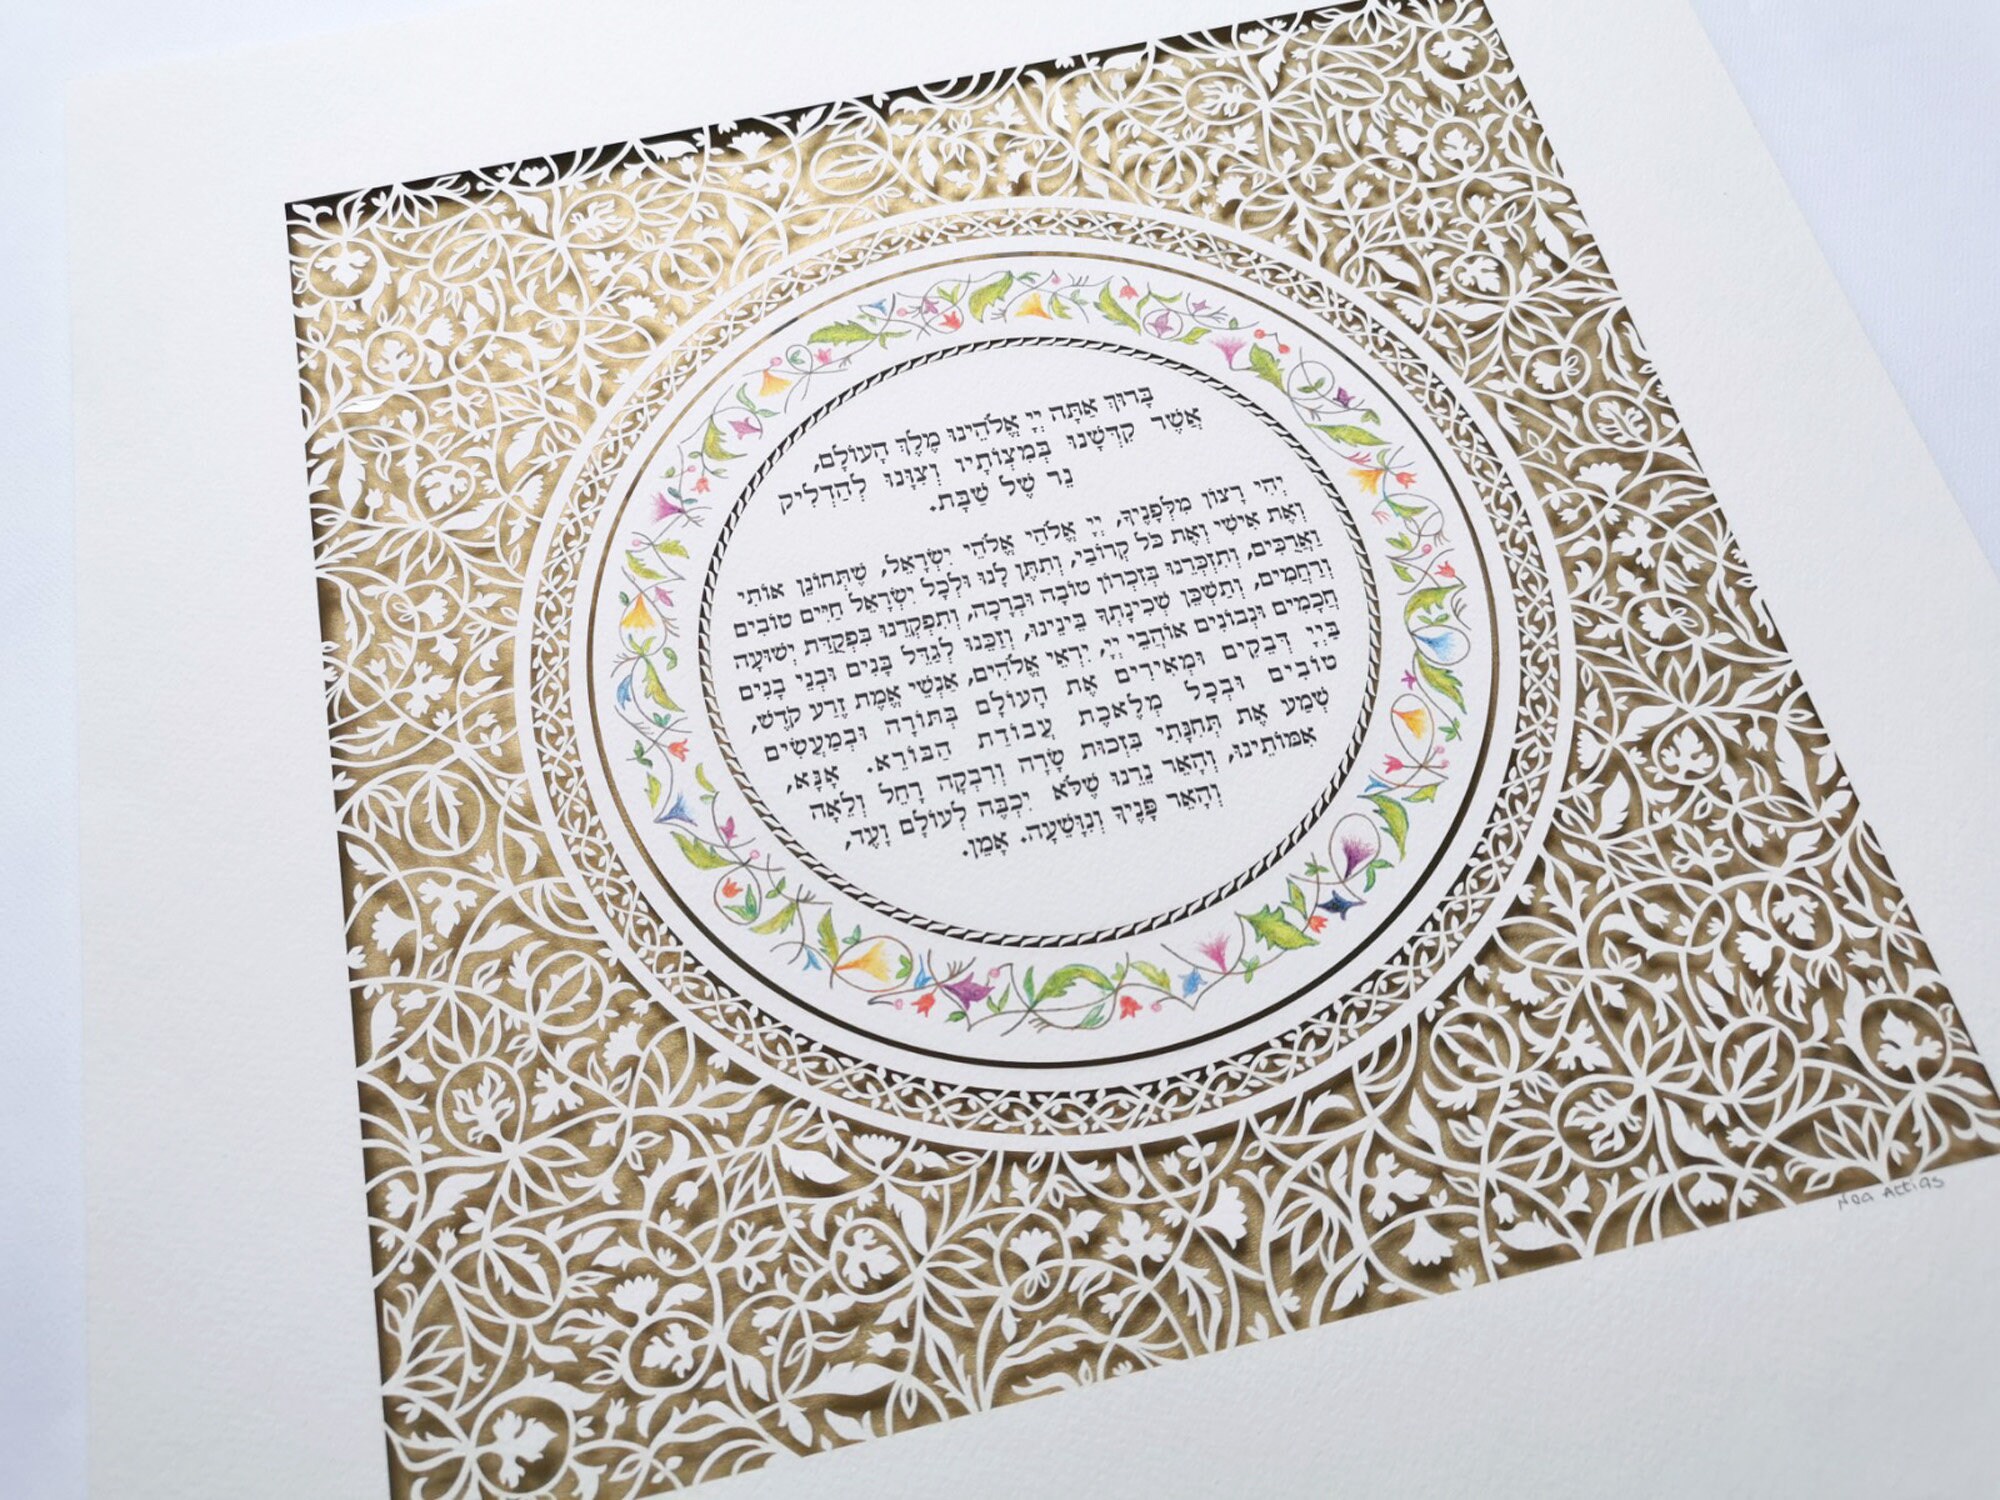 בָּרוּךְ אַתָּה יְיָ אֱלֹהֵינוּ מֶלֶךְ הָעוֹלָם,
אֲשֶׁר קִדְּשָׁנוּ בְּמִצְוֹתָיו וְצִוָּנוּ לְהַדְלִיק
נֵר שֶׁל שַׁבָּת.
יְהִי רָצוֹן מִלְּפָנֶיךָ, יְיָ אֱלֹהַי אֱלֹהֵי יִשְׂרָאֵל, שֶׁתְּחוֹנֵן אוֹתִי
וְאֶת אִישִׁי וְאֶת כֹּל קְרוֹבַי, וְתִתֶּן לָנוּ וּלְכָל יִשְׂרָאֵל חַיִּים טוֹבִים
וַאֲרֻכִּים, וְתִזְכְּרֵנוּ בְּזִכְרוֹן טוֹבָה וּבְרָכָה, וְתִפְקְדֵנוּ בִּפְקֻדַּת יְשׁוּעָה
וְרַחֲמִים, וְתַשְׁכֵּן שְׁכִינָתְךָ בֵּינֵינוּ, וְזַכֵּנוּ לְגַדֵּל בָּנִים וּבְנֵי בָנִים
חֲכָמִים וּנְבוֹנִים אוֹהֲבֵי יְיָ, יִרְאֵי אֱלֹהִים, אַנְשֵׁי אֱמֶת זֶרַע קֹדֶשׁ,
בַּיְיָ דְּבֵקִים וּמְאִירִים אֶת הָעוֹלָם בְּתוֹרָה וּבְמַעֲשִׂים
טוֹבִים וּבְכָל מְלֶאכֶת עֲבוֹדַת הַבּוֹרֵא. אָנָּא,
שְׁמַע אֶת תְּחִנָּתִי בִּזְכוּת שָׂרָה וְרִבְקָה רָחֵל וְלֵאָה
אִמּוֹתֵינוּ, וְהָאֵר נֵרֵנוּ שֶׁלֹּא יִכְבֶּה לְעוֹלָם וָעֶד,
וְהָאֵר פָּנֶיךָ וְנִוָּשֵׁעָה. אָמֵן.
Noa Attias